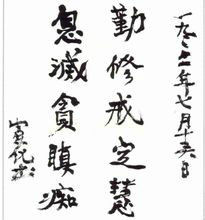 一九八二年七月十五日
勤修戒定慧
息滅貪瞋痴
宣化